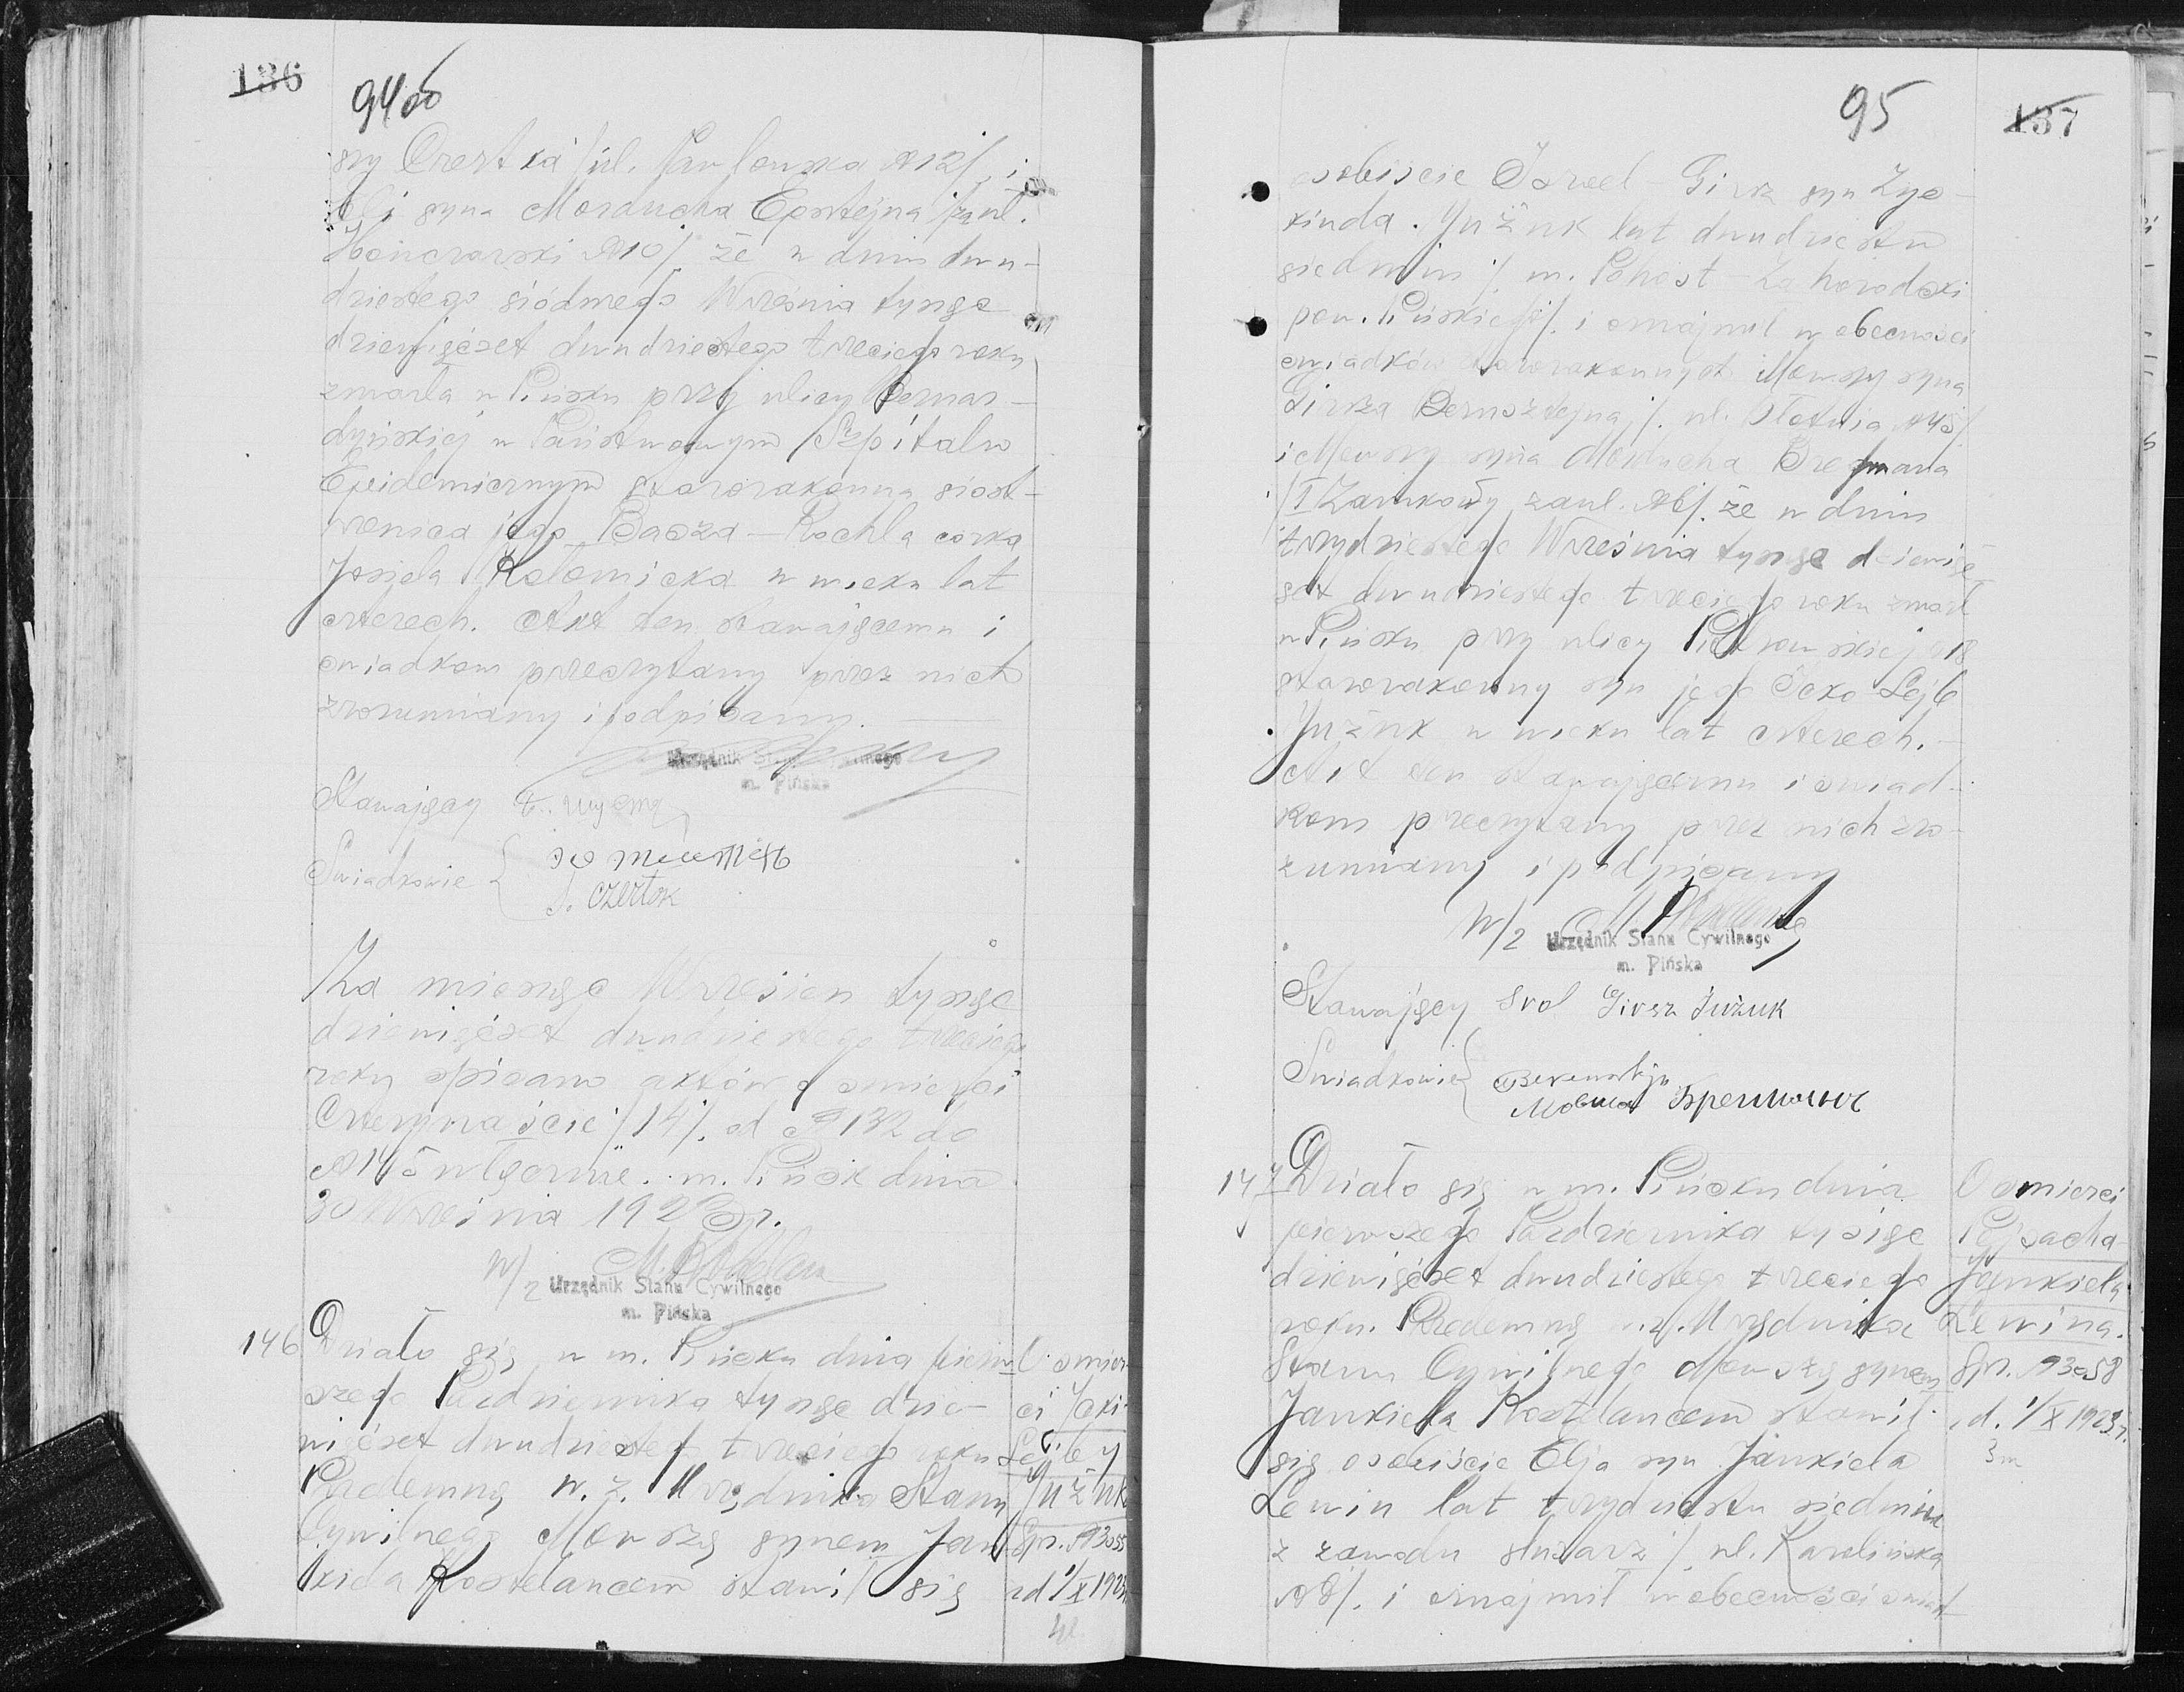 136
94
szy Czertka /ul.
syna Morducha Epsztejna /zauł.
Honczarski №10/ że w dniu dwu-
dziestego siódmego Września tysąc
dziewięćset dwudziestego trzeciego roku
zmarła w Pińsku przy ulicy Bernar-
dyńskiej w Państwowym Szpitalu
Epidemicznym starozakonna siost-
rzenica jego Basza-Rochla córka
Josiela Kołomicka w wieku lat
czterech. Akt ten stawającemu i
świadkom przeczytany przez nich
zrozumiany i podpisany.
Urzędnik Stanu Cywilnego
m. Pińska
Stawający
Świadkowie
S. Czertok
Za miesąc Wrzesien tysąc
dziewięćset dwudziestego trzeciego
roku spisano aktów o śmierci
Czternaście /14/. od №132 do
№145 włącznie. m. Pińsk dnia
30 Września 1923 r.
w/z
Urzędnik Stanu Cywilnego
m. Pińska
146 Działo się w m. Pińsku dnia pierw-
szego Pazdziernika tysąc dzie-
więćset dwudziestego trzeciego roku
Przedemną w. z. Urzędnika Stanu
Cywilnego Mowszą synem Jan-
kiela Kostelancem stawił się
O śmier-
ci Icki
Lejby
Jużuk
Spr. №3055
od 1/X 1923
95
137
osobiscie Izrael Girsz syn Zys-
kinda Jużuk lat dwudziestu
siedmiu /. m. Pohost-Zahorodzki
pow. Pińskiego/. i oznajmił w obecności
świadków starozakonnych Mowszy syna
Girsza Bernsztejna /. ul. Błotnia №45/.
i Mowszy syna Morducha Bregmana
/I Zamkowy zauł. №6/. że w dniu
trzydziestego Września tysąc dziewię-
set dwudziestego trzeciego roku zmarł
w Pińsku przy ulicy Piotrowskiej №18
starozakonny syn jego Icko-Lejb
Jużuk w wieku lat czterech.-
Akt ten stawającemu i świad-
kom przeczytany przez nich zro-
zumiany i podpisany
w/z
Urzędnik Stanu Cywilnego
m. Pińska
Stawający Srol Girsz Jużuk
Świadkowie
147 Działo się w m. Pińsku dnia
pierwszego Pazdziernika tysiąc
dziewięćset dwudziestego trzeciego
roku. Przedemną w. z. Urzędnika
Stanu Cywilnego Mowszą synem
Jankiela Kostelancem stawił
się osobiście Elja syn Jankiela
Lewin lat trzydziestu siedmiu
z zawodu ślusarz /. ul. Karolińska
№8/. i oznajmił w obecności świad-
O śmierci
Pejsacha
Jankiela
Lewina.
Spr. №3058
od. 1/X 1923 r.
3 m